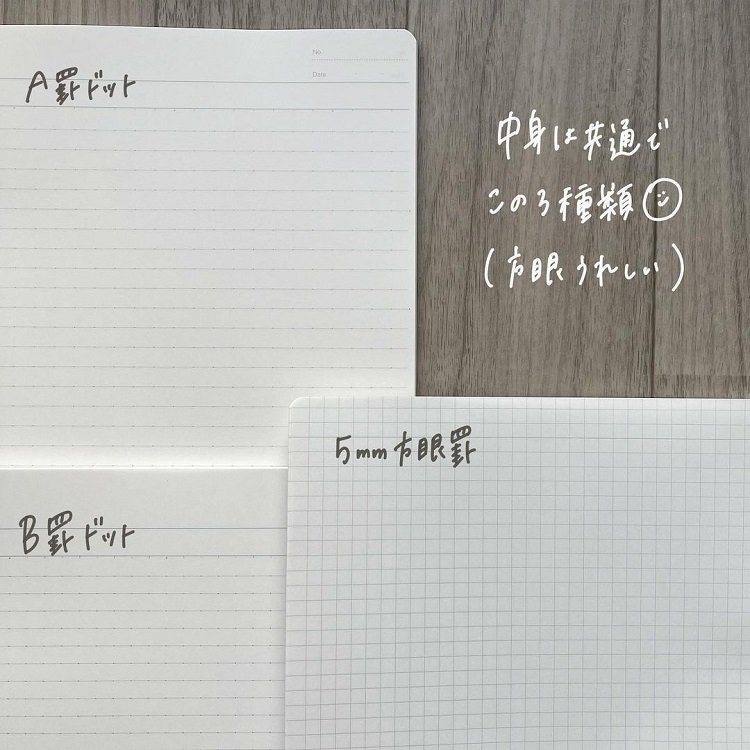 No.
Date
A罫ドット
中身は共通で
この3種類
(方眼うれしい)
5mm方眼罫
B罫ドット